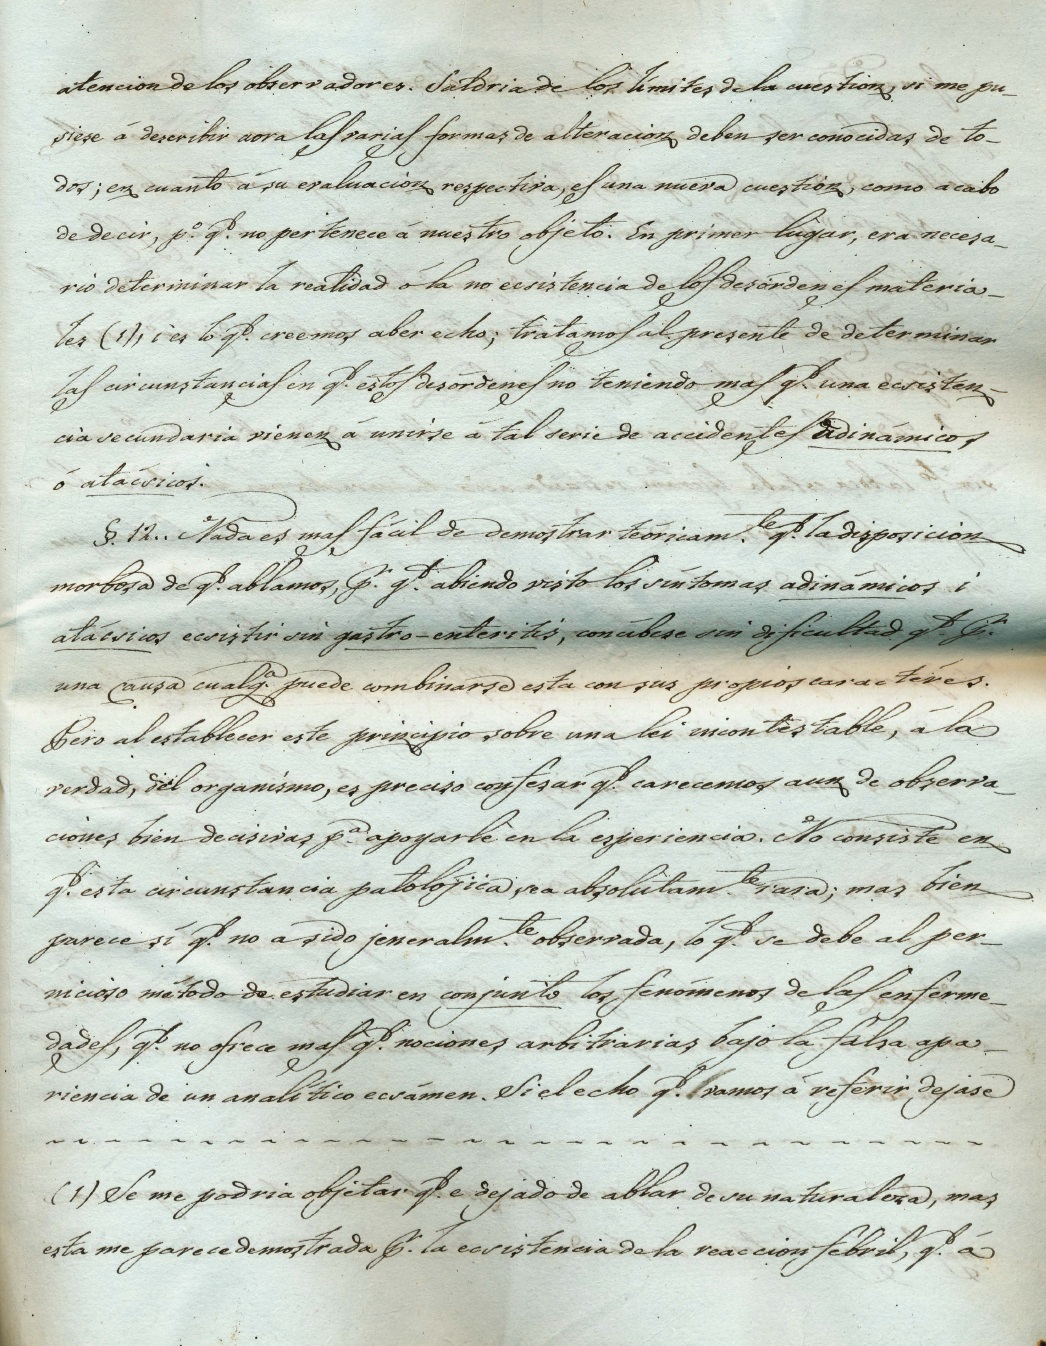 atencion de los observadores. Saldria de los límites de la cuestion, si me pu-
siese á describir aora las varias formas de alteracion deben ser conocidas de to-
dos; en cuanto á su evaluacion respectiva, es una nueva cuestion, como acabo
de decir, p.º q.ᵉ no pertenece á nuestro objeto. En primer lugar, era necesa-
rio determinar la realidad ó la no ecsistencia de los desórdenes materia-
les (1), i es lo q.ᵉ creemos aber echo; tratamos al presente de determinar
las circunstancias en q.ᵉ estos desórdenes no teniendo mas q.ᵉ una ecsisten-
cia secundaria vienen á unirse á tal serie de accidentes adinámicos
ó atácsicos.
§. 12.. Nada es mas fácil de demostrar teóricam.ᵗᵉ q.ᵉ la disposicion
morbosa de q.ᵉ ablamos, p.ʳ q.ᵉ abiendo visto los síntomas adinámicos i
atácsicos ecsistir sin gastro-enteritis, concíbese sin dificultad q.ᵉ p.ʳ
una causa cualq.ᵃ puede combinarse esta con sus propios caractéres.
Pero al establecer este principio sobre una lei incontestable, á la
verdad, del organísmo, es preciso confesar q.ᵉ carecemos aun de observa-
ciones bien decisivas p.ᵃ apoyarle en la esperiencia. No consiste en
q.ᵉ esta circunstancia patolójica, sea absolutam.ᵗᵉ rara; mas bien
parece sí q.ᵉ no a sido jeneralm.ᵗᵉ observada, lo q.ᵉ se debe al per-
nicioso método de estudiar en conjunto los fenómenos de las enferme-
dades, q.ᵉ no ofrece mas q.ᵉ nociones arbitrarias, bajo la falsa apa-
riencia de un analítico ecsámen. Si el echo q.ᵉ vamos á referir dejase
(1) Se me podria objetar q.ᵉ e dejado de ablar de su naturaleza, mas
esta me parece demostrada p.ʳ la ecsistencia de la reaccion fébril, q.ᵉ á